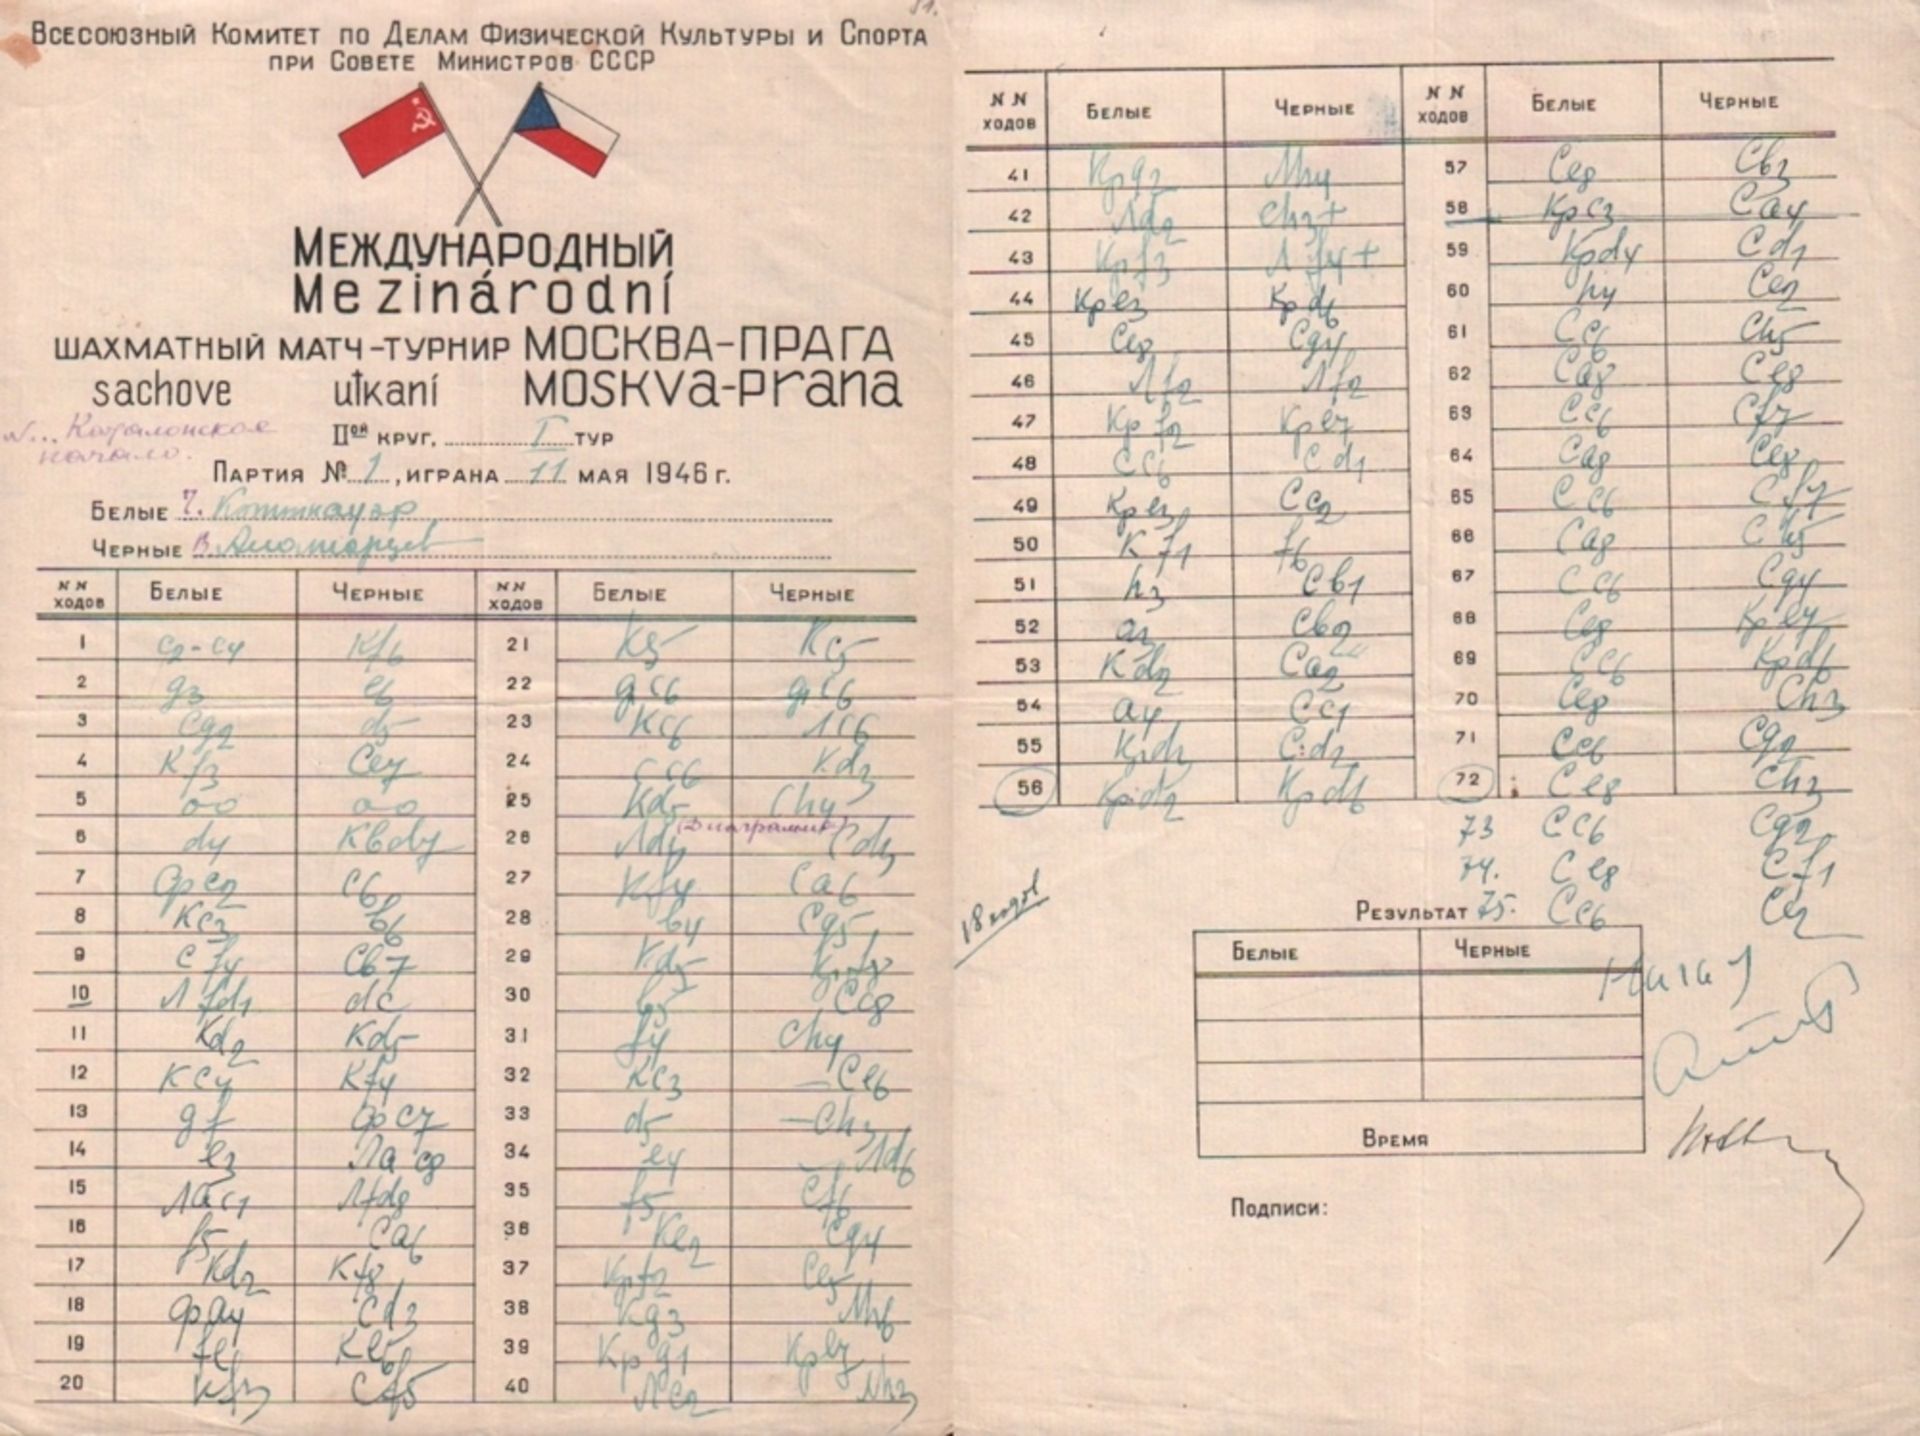 Всесоюзный Комитет по Делам Физической Культуры и Спорта
при Совете Министров СССР
Международный
Mezinárodní
шахматный матч-турнир Москва-Прага
sachove utkaní Moskva-Prana
Каталонское
начало.
IIой круг, I тур
Партия № 1, играна 11 мая 1946 г.
Белые Ч. Коттнауэр
Черные В. Алаторцев
NN ходов Белые Черные NN ходов Белые Черные
1 c2-c4 Кf6 21 Кc5
2 g3 e6 22 gc6 gc6
3 Сg2 d5 23 Кc6 Лc6
4 Кf3 Сe7 24 Сc6 Кd3
5 оо оо 25 Кd5 Сh4
6 d4 Кbd7 26 Лd4
7 Фc2 c6 27 Кf4 Сa6
8 Кc3 b6 28 b4 Сg5
9 Сf4 Сb7 29 Кd5 Крf8
10 Лfd1 dc 30 b5 Сc8
11 Кd2 Кd5 31 f4 Сh4
12 Кc4 Кf4 32 Кc3 Сe6
13 gf Фc7 33 d5 Сh3
14 e3 Лac8 34 e4 Лd6
15 Лac1 Лfd8 35 f5 Сf6
16 f5 Сa6 36 Кe2 Сg4
17 Кd2 Кf8 37 Крf2 Сe5
18 Фa4 Сd3 38 Кg3 Лh6
19 fe Кe6 39 Крg1 Крe7
20 Кf3 Сf5 40 Лc2 Лh3
NN ходов Белые Черные NN ходов Белые Черные
41 Крg2 Лh4 57 Сe8 Сb3
42 Лd2 Сh3+ 58 Крc3 Сa4
43 Крf3 Лf4+ 59 Крd4 Сd1
44 Крe3 Крd6 60 h4 Сe2
45 Сe8 Сg4 61 Сc6 Сh5
46 Лf2 Лf2 62 Сa8 Сe8
47 Крf2 Крe7 63 Сc6 Сf7
48 Сc6 Сd1 64 Сa8 Сe8
49 Крe3 Сc2 65 Сc6 Сf7
50 Кf1 f6 66 Сa8 Сh5
51 h3 Сb1 67 Сc6 Сg4
52 a3 Сb2 68 Сe8 Крe7
53 Кd2 Сa2 69 Сc6 Крd6
54 a4 Сc1 70 Сe8 Сh3
55 Сd2 71 Сc6 Сg2
56 Крd2 Крd6 72 Сe8 Сh3
73 Сc6 Сg2
74. Сe8 Сf1
75. Сc6 Сe2
18 ходов
Результат
Белые Черные
Ничья
Время
Подписи: